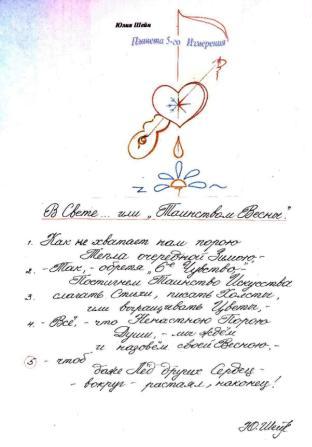 Юлия Шейн
Планета 5-го Измерения
В Свете... или „Таинством Весны".
1. Как не хватает нам порою
Тепла очередной Зимою,-
2. - Так, - обретя „6е Чувство",-
Постигнем Таинство Искусства
3. слагать Стихи, писать Холсты,
или выращивать Цветы,-
4. - Всё, - что Ненастною Порою
Души, - мы ждём
и назовём своей Весною,-
5 - чтоб
даже Лёд других Сердец -
- вокруг - растаял, наконец!
Ю. Шейн